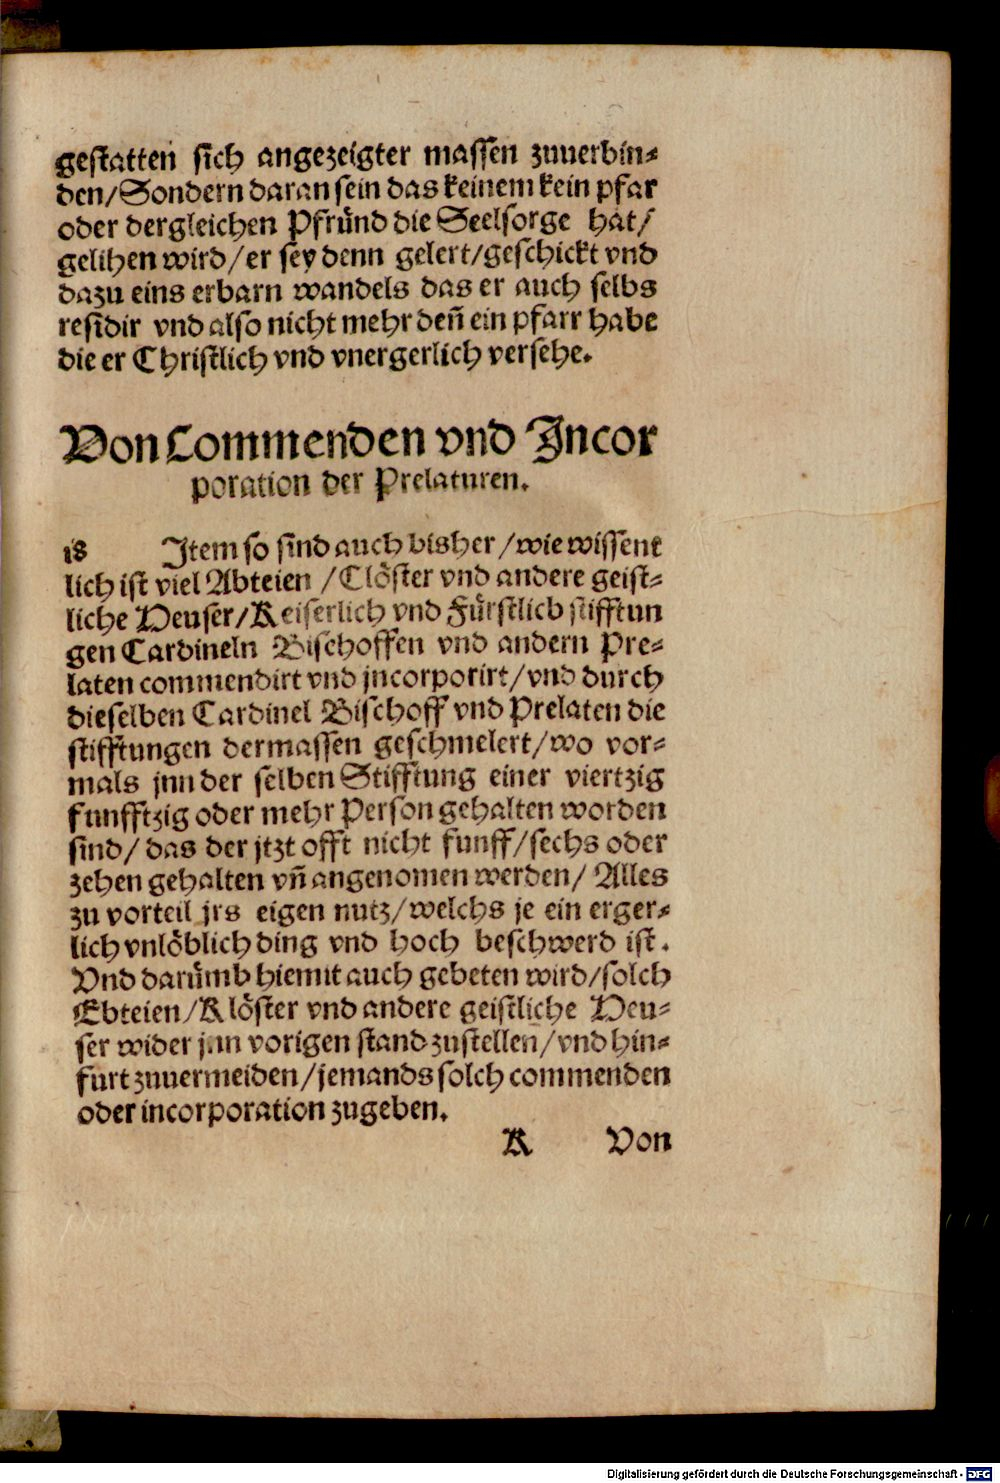 gestatten sich angezeigter massen zuuerbin-
den/Sondern daran sein das keinem kein pfar
oder dergleichen Pfründ die Seelsorge hat/
gelihen wird/er sey denn gelert/geschickt vnd
dazu eins erbarn wandels das er auch selbs
residir vnd also nicht mehr deñ ein pfarr habe
die er Christlich vnd vnergerlich versehe.
Von Commenden vnd Incor
poration der Prelaturen.
18 Item so sind auch bisher/wie wissent
lich ist viel Abteien/Clöster vnd andere geist-
liche Heuser/Keiserlich vnd Fürstlich stifftun
gen Cardineln Bischoffen vnd andern Pre-
laten commendirt vnd jncorporirt/vnd durch
dieselben Cardinel Bischoff vnd Prelaten die
stifftungen dermassen geschmelert/wo vor-
mals jnn der selben Stifftung einer viertzig
funfftzig oder mehr Person gehalten worden
sind/das der jtzt offt nicht funff/sechs oder
zehen gehalten vñ angenomen werden/Alles
zu vorteil jrs eigen nutz/welchs je ein erger-
lich vnlöblich ding vnd hoch beschwerd ist.
Vnd darümb hiemit auch gebeten wird/solch
Ebteien/Klöster vnd andere geistliche Heu-
ser wider jnn vorigen stand zustellen/vnd hin-
furt zuuermeiden/jemands solch commenden
oder incorporation zugeben.
K Von
Digitalisierung gefördert durch die Deutsche Forschungsgemeinschaft - DFG